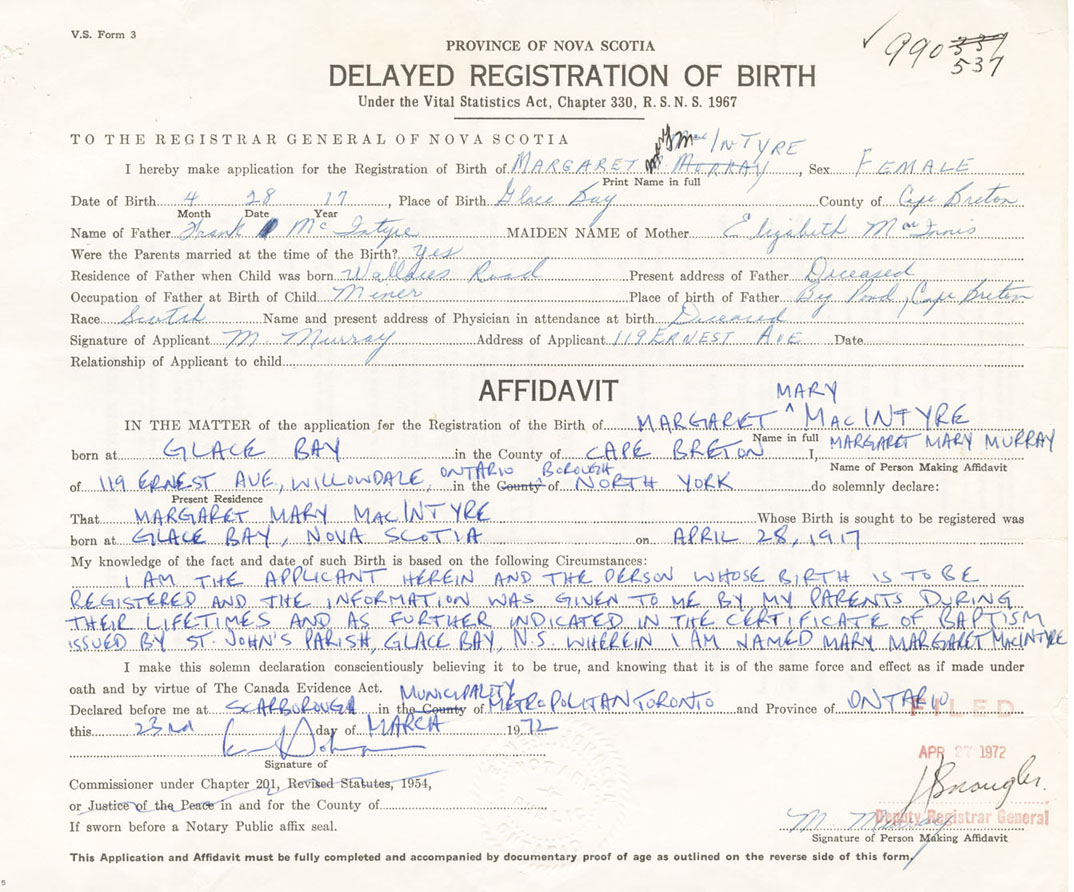 V.S. Form 3
990 337
537
PROVINCE OF NOVA SCOTIA
DELAYED REGISTRATION OF BIRTH
Under the Vital Statistics Act, Chapter 330, R.S.N.S. 1967
TO THE REGISTRAR GENERAL OF NOVA SCOTIA
I hereby make application for the Registration of Birth of MARGARET Mary MURRAY MacINTYRE, Sex FEMALE
Print Name in full
Date of Birth 4 28 17, Place of Birth Glace Bay County of Cape Breton
Month Date Year
Name of Father Frank McIntyre MAIDEN NAME of Mother Elizabeth MacInnis
Were the Parents married at the time of the Birth? Yes
Residence of Father when Child was born Wallaces Road Present address of Father Deceased
Occupation of Father at Birth of Child Miner Place of birth of Father Big Pond, Cape Breton
Race Scotch Name and present address of Physician in attendance at birth Deceased
Signature of Applicant M. Murray Address of Applicant 119 ERNEST AVE Date
Relationship of Applicant to child
AFFIDAVIT
IN THE MATTER of the application for the Registration of Birth of MARGARET ^ MARY MacINTYRE
Name in full
born at GLACE BAY in the County of CAPE BRETON I, MARGARET MARY MURRAY
Name of Person Making Affidavit
of 119 ERNEST AVE, WILLOWDALE, ONTARIO in the County BOROUGH of NORTH YORK do solemnly declare:
Present Residence
That MARGARET MARY MacINTYRE Whose Birth is sought to be registered was
born at GLACE BAY, NOVA SCOTIA on APRIL 28, 1917
My knowledge of the fact and date of such Birth is based on the following Circumstances:
I AM THE APPLICANT HEREIN AND THE PERSON WHOSE BIRTH IS TO BE
REGISTERED AND THE INFORMATION WAS GIVEN TO ME BY MY PARENTS DURING
THEIR LIFETIMES AND AS FURTHER INDICATED IN THE CERTIFICATE OF BAPTISM
ISSUED BY ST. JOHN'S PARISH, GLACE BAY, N.S. WHEREIN I AM NAMED MARY MARGARET MACINTYRE
I make this solemn declaration conscientiously believing it to be true, and knowing that it is of the same force and effect as if made under
oath and by virtue of The Canada Evidence Act.
Declared before me at SCARBOROUGH in the County MUNICIPALITY of METROPOLITAN TORONTO and Province of ONTARIO
FILED
this 23rd day of MARCH 1972
APR 27 1972
Signature of
Commissioner under Chapter 201, Revised Statutes, 1954,
or Justice of the Peace in and for the County of
If sworn before a Notary Public affix seal.
Deputy Registrar General
M. Murray
Signature of Person Making Affidavit
This Application and Affidavit must be fully completed and accompanied by documentary proof of age as outlined on the reverse side of this form.
5